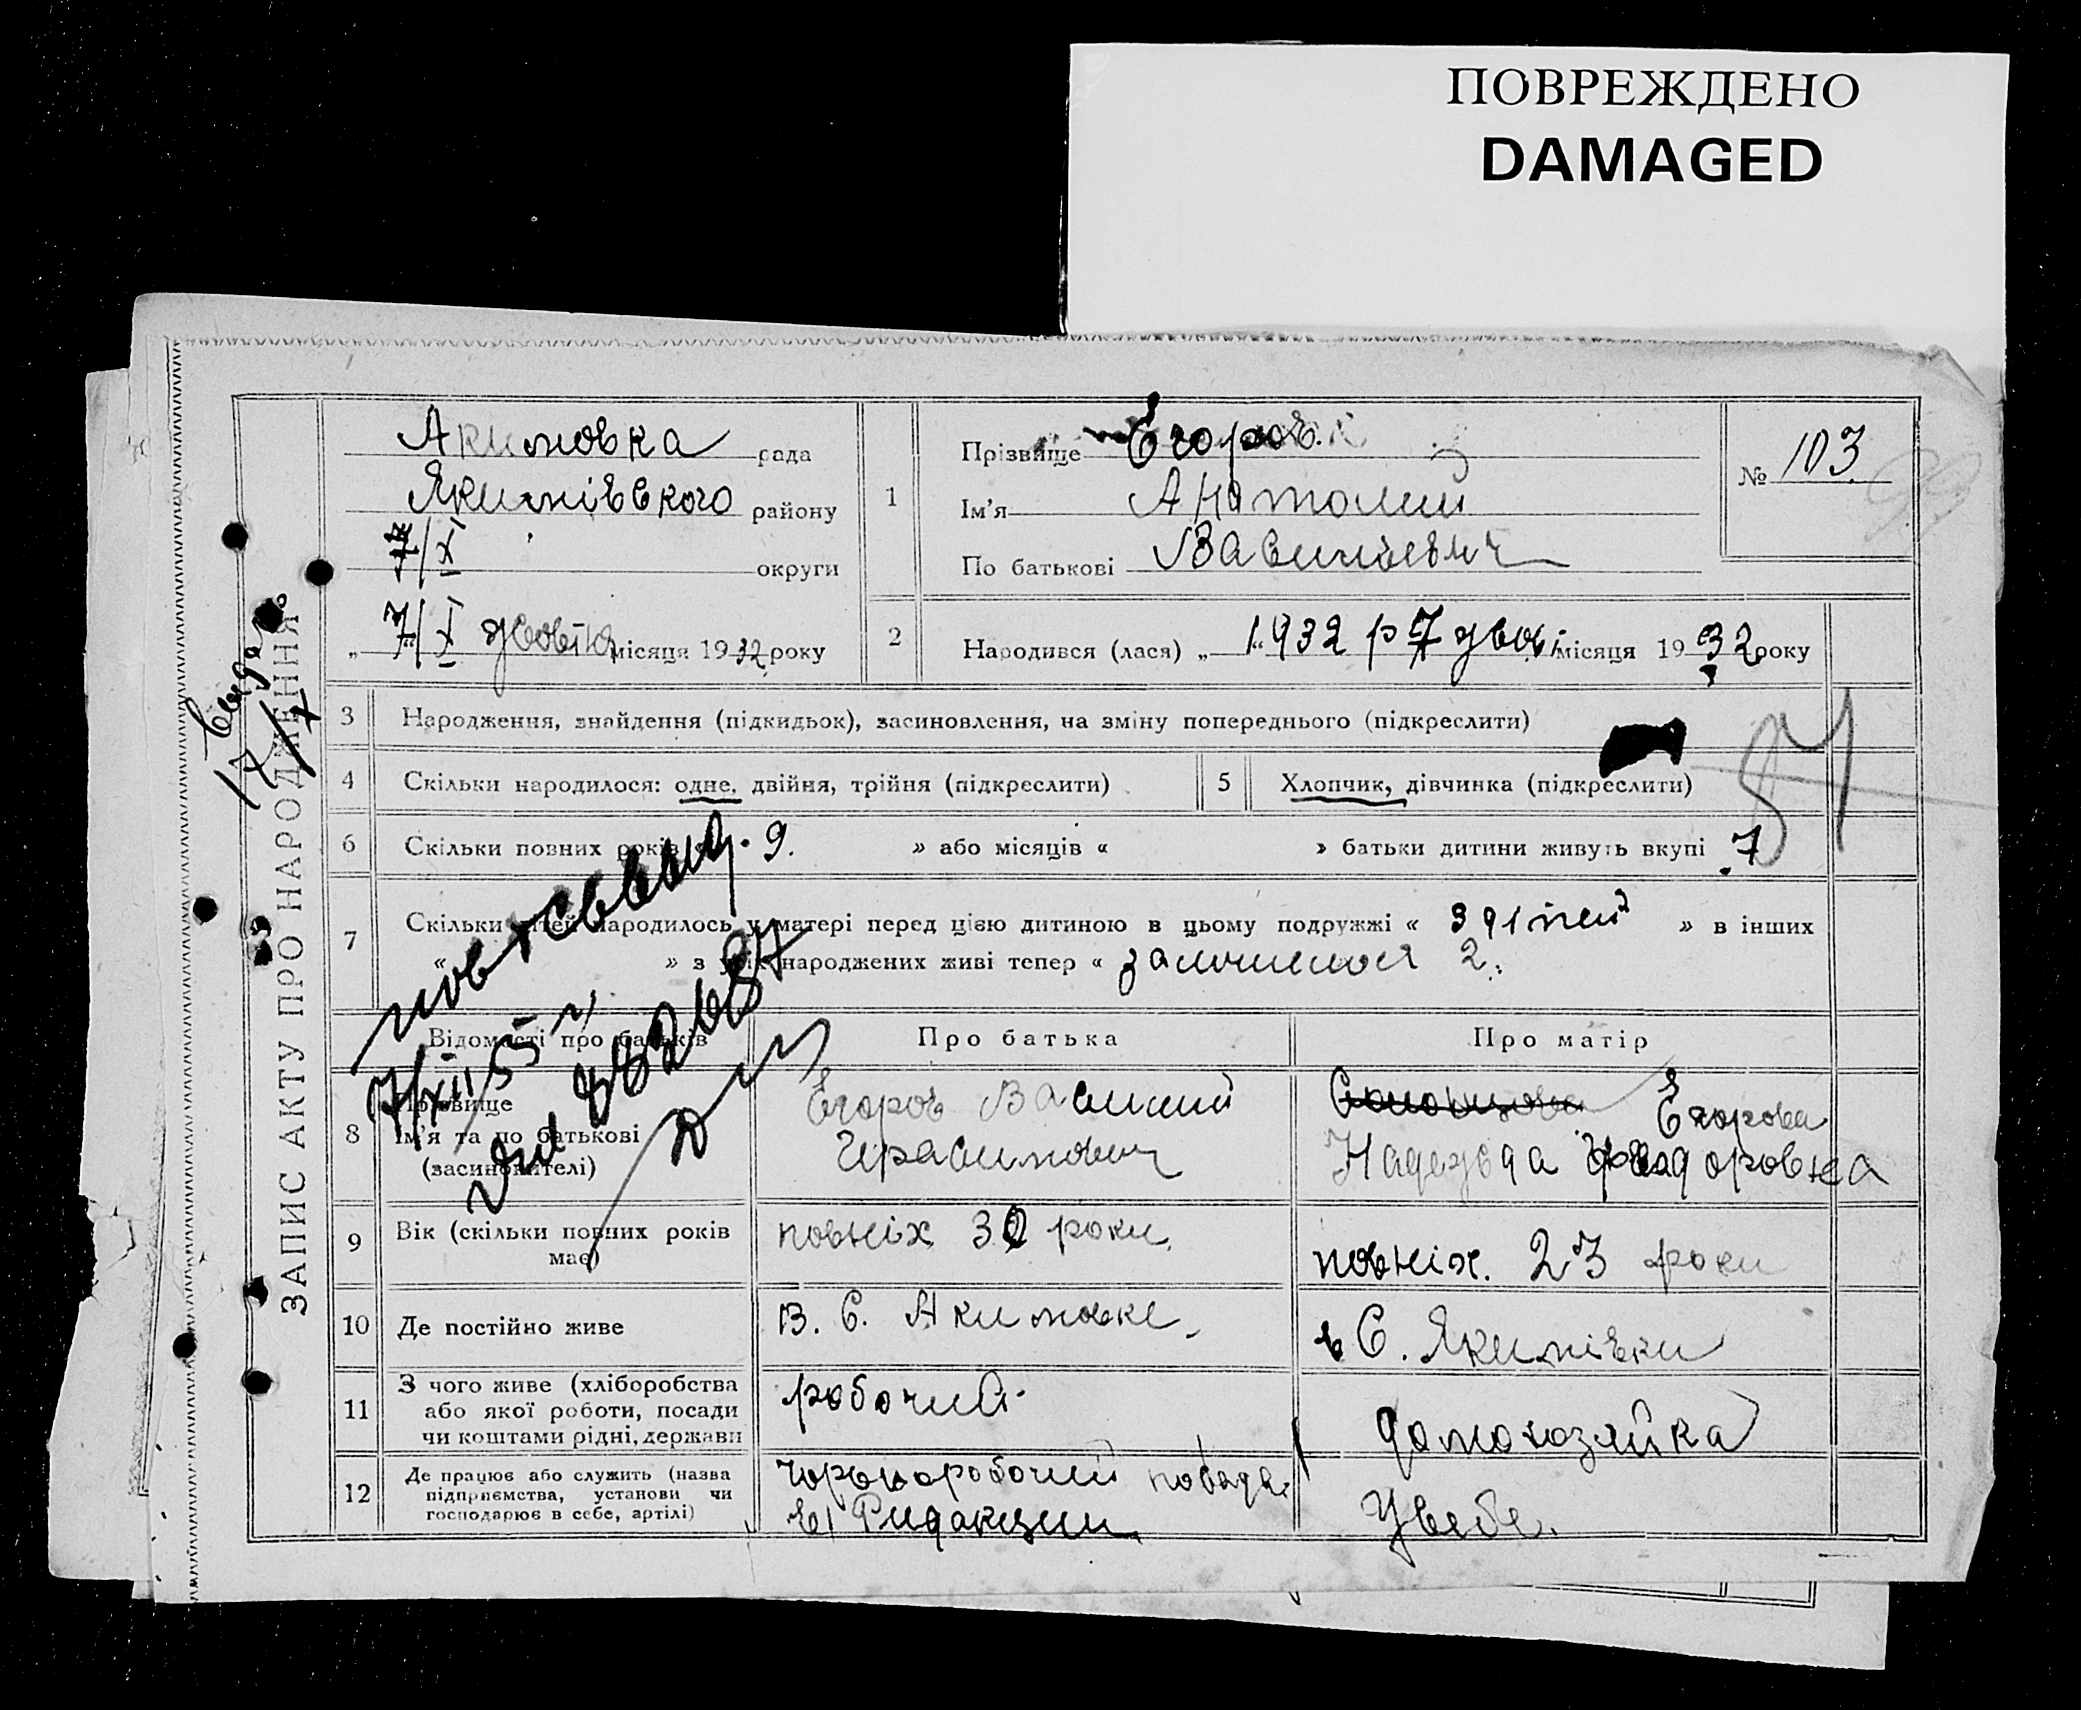 ПОВРЕЖДЕНО
DAMAGED
ЗАПИС АКТУ ПРО НАРОДЖЕННЯ
Акимовка рада
Якимівского району
7/X
округи
„ 7/X місяця 1932 року
1
Прізвище Егоров.
Ім'я Анатолий
По батькові
№ 103
2
Народився (лася) „ 1932 р 7 місяця 1932 року
3
Народження, знайдення (підкидьок), засиновлення, на зміну попереднього (підкреслити)
4
Скільки народилося: одне, двійня, трійня (підкреслити)
5
Хлопчик, дівчинка (підкреслити)
6
Скільки повних років 9. » або місяців « » батьки дитини живуть вкупі 7
7
Скільки дітей народилось у матері перед цією дитиною в цьому подружжі « » в інших
« » з усіх народжених живі тепер « 2.
7/XII 55 г.
Відомості про батьків
Про батька
Про матір
8
Прізвище
Ім'я та по батькові
(засиновителі)
Егоров Василий
Герасимович
Егорова
Надежда Федоровна
9
Вік (скільки повних років
має)
повніх 32 роки.
повніх. 23 роки
10
Де постійно живе
В. С. Акимовке.
в С. Якимівки
11
З чого живе (хліборобства
або якої роботи, посади
чи коштами рідні, держави
робочий
домохозяйка
12
Де працює або служить (назва
підприємства, установи чи
господарює в себе, артілі)
чорноробочий
Ридакции
У себе.